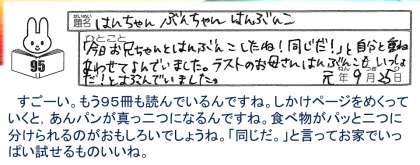 題名 はんちゃん ぶんちゃん はんぶんこ
ひとこと
「今日お兄ちゃんとはんぶんこしたね!同じだ!」と自分と重ね
あわせてよんでいました。ラストのお母さんはんぶんこも、いっしょ
だ!とよろこんでいました。
元年9月25日
95
すごーい。もう95冊も読んでいるんですね。しかけページをめくって
いくと、あんパンが真っ二つになるんですね。食べ物がパッと二つに
分けられるのがおもしろいでしょうね。「同じだ。」と言ってお家でいっ
ぱい試せるものいいね。